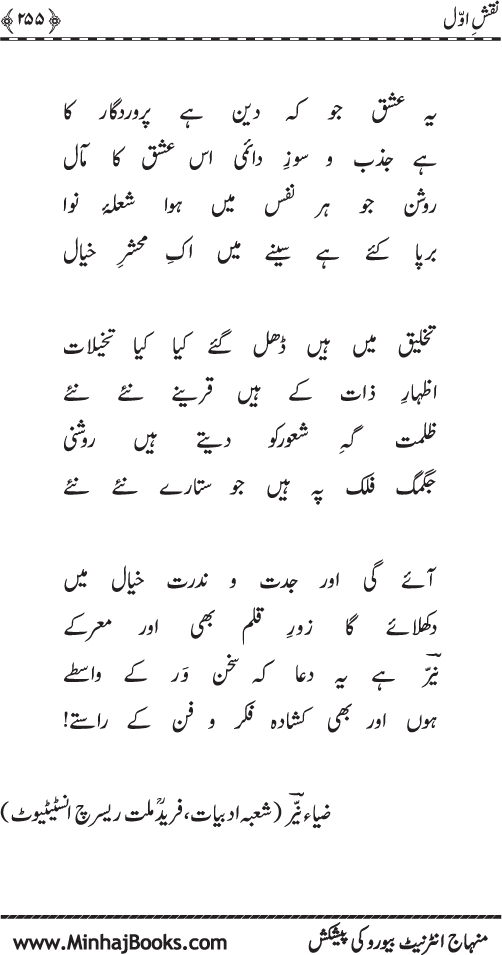 نقشِ اوّل
﴿۲۵۵﴾
یہ عشق جو کہ دین ہے پروردگار کا
ہے جذب و سوزِ دائمی اس عشق کا مآل
روشن جو ہر نفس میں ہوا شعلۂ نوا
برپا کئے ہے سینے میں اکِ محشرِ خیال
تخلیق میں ہیں ڈھل گئے کیا کیا تخیلات
اظہارِ ذات کے ہیں قرینے نئے نئے
ظلمت گہِ شعورکو دیتے ہیں روشنی
جگمگ فلک پہ ہیں جو ستارے نئے نئے
آئے گی اور جدت و ندرت خیال میں
دکھلائے گا زورِ قلم بھی اور معرکے
نیّرؔ ہے یہ دعا کہ سخن وَر کے واسطے
ہوں اور بھی کشادہ فکر و فن کے راستے!
ضیاء نیّرؔ (شعبہ ادبیات، فریدِؒ ملت ریسرچ انسٹیٹیوٹ)
منہاج انٹرنیٹ بیورو کی پیشکش
www.MinhajBooks.com